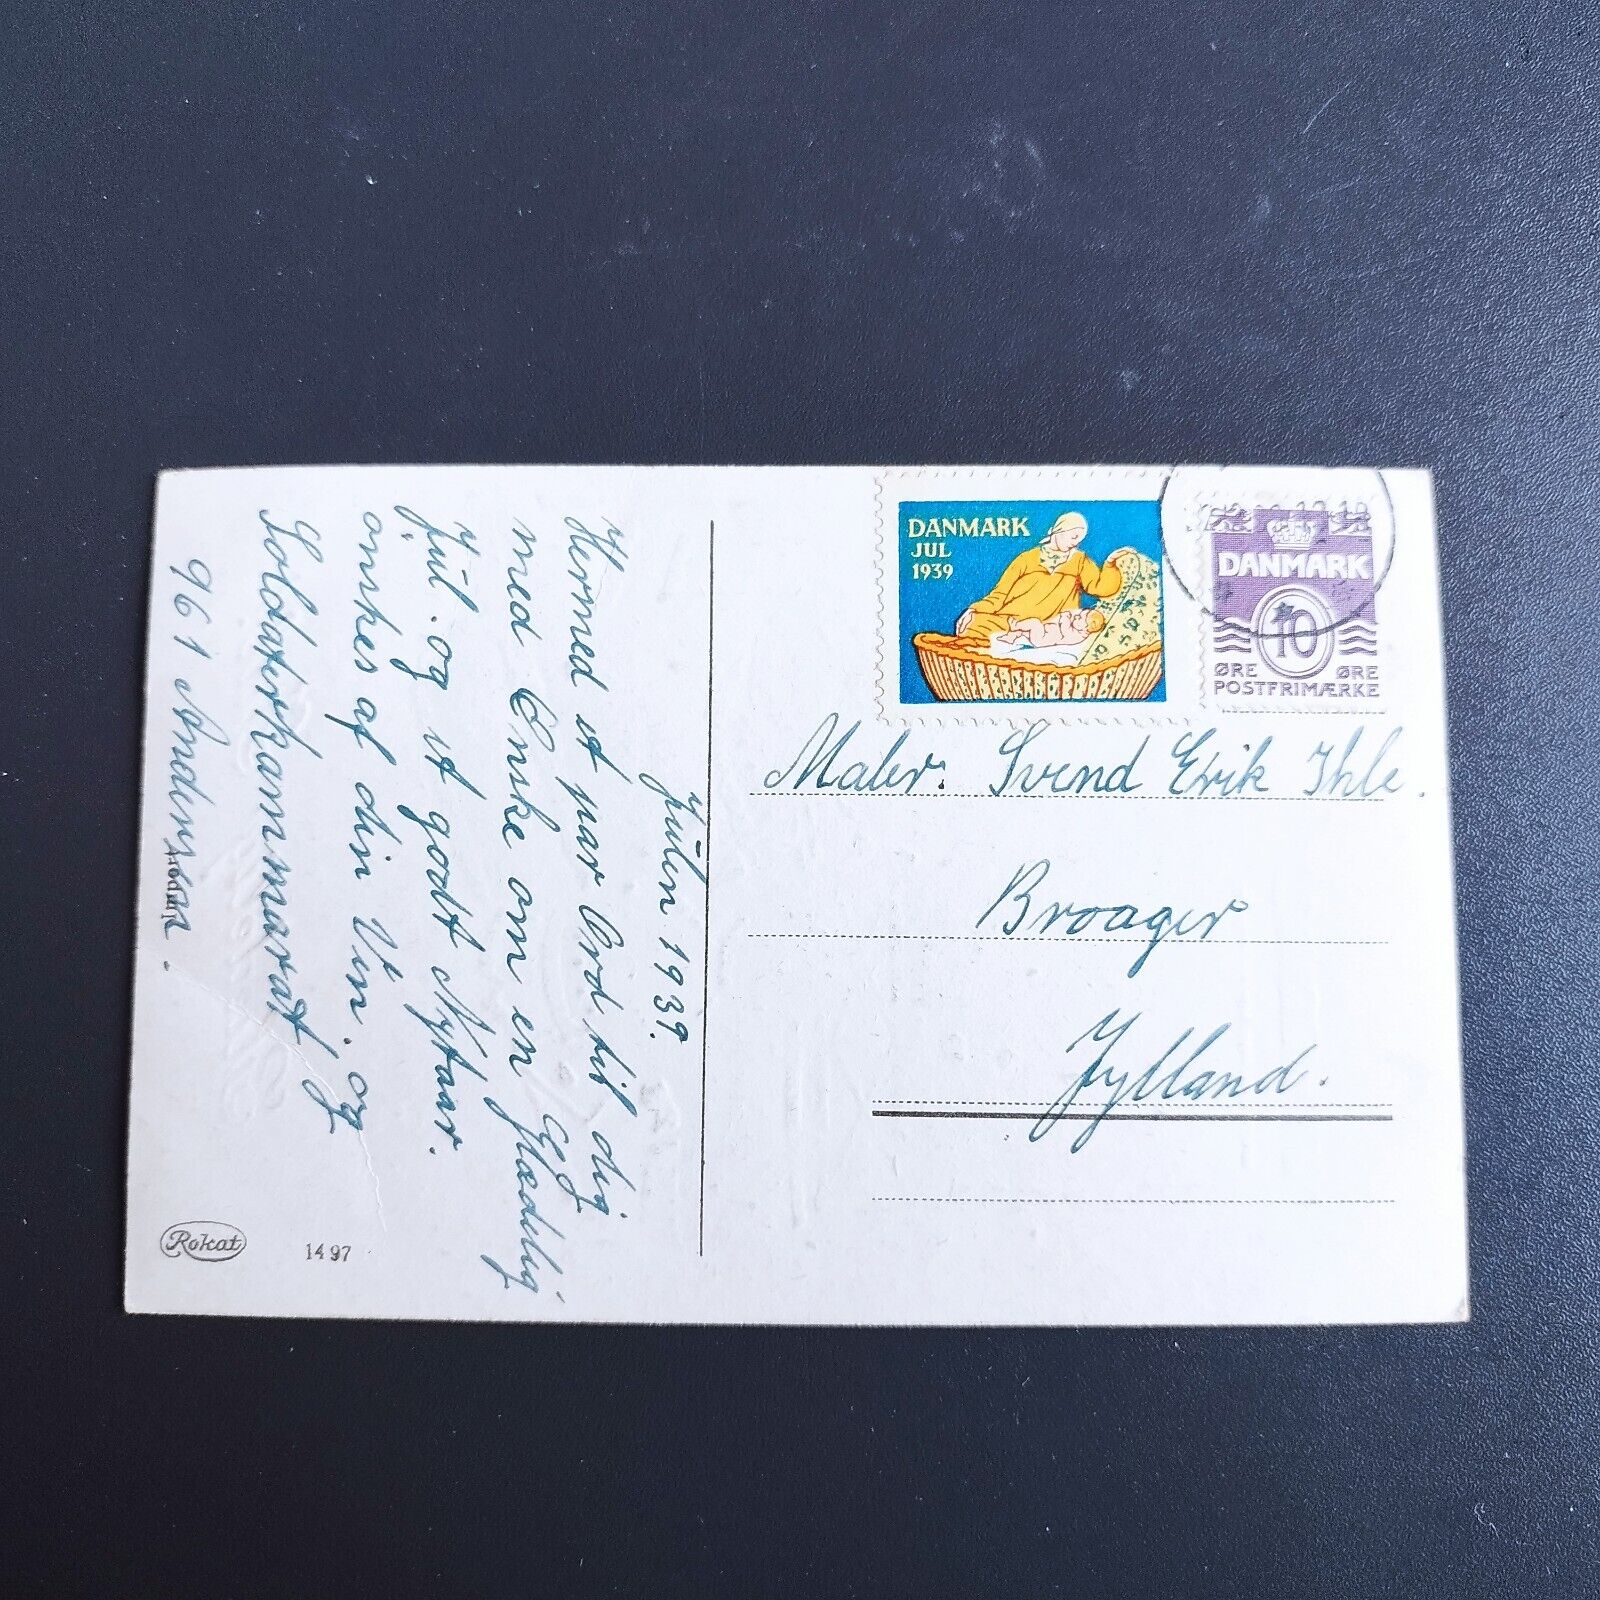 Julen 1939.
Hermed et par Ord til dig
med Ønske om en glædelig
jul. og et godt Nytaar.
ønskes af din Ven. og
Soldaterkammarat
961 Andersen.
DANMARK
JUL
1939
DANMARK
10
ØRE ØRE
POSTFRIMÆRKE
Maler: Svend Erik Ihle.
Broager
Jylland.
Rokat
1497